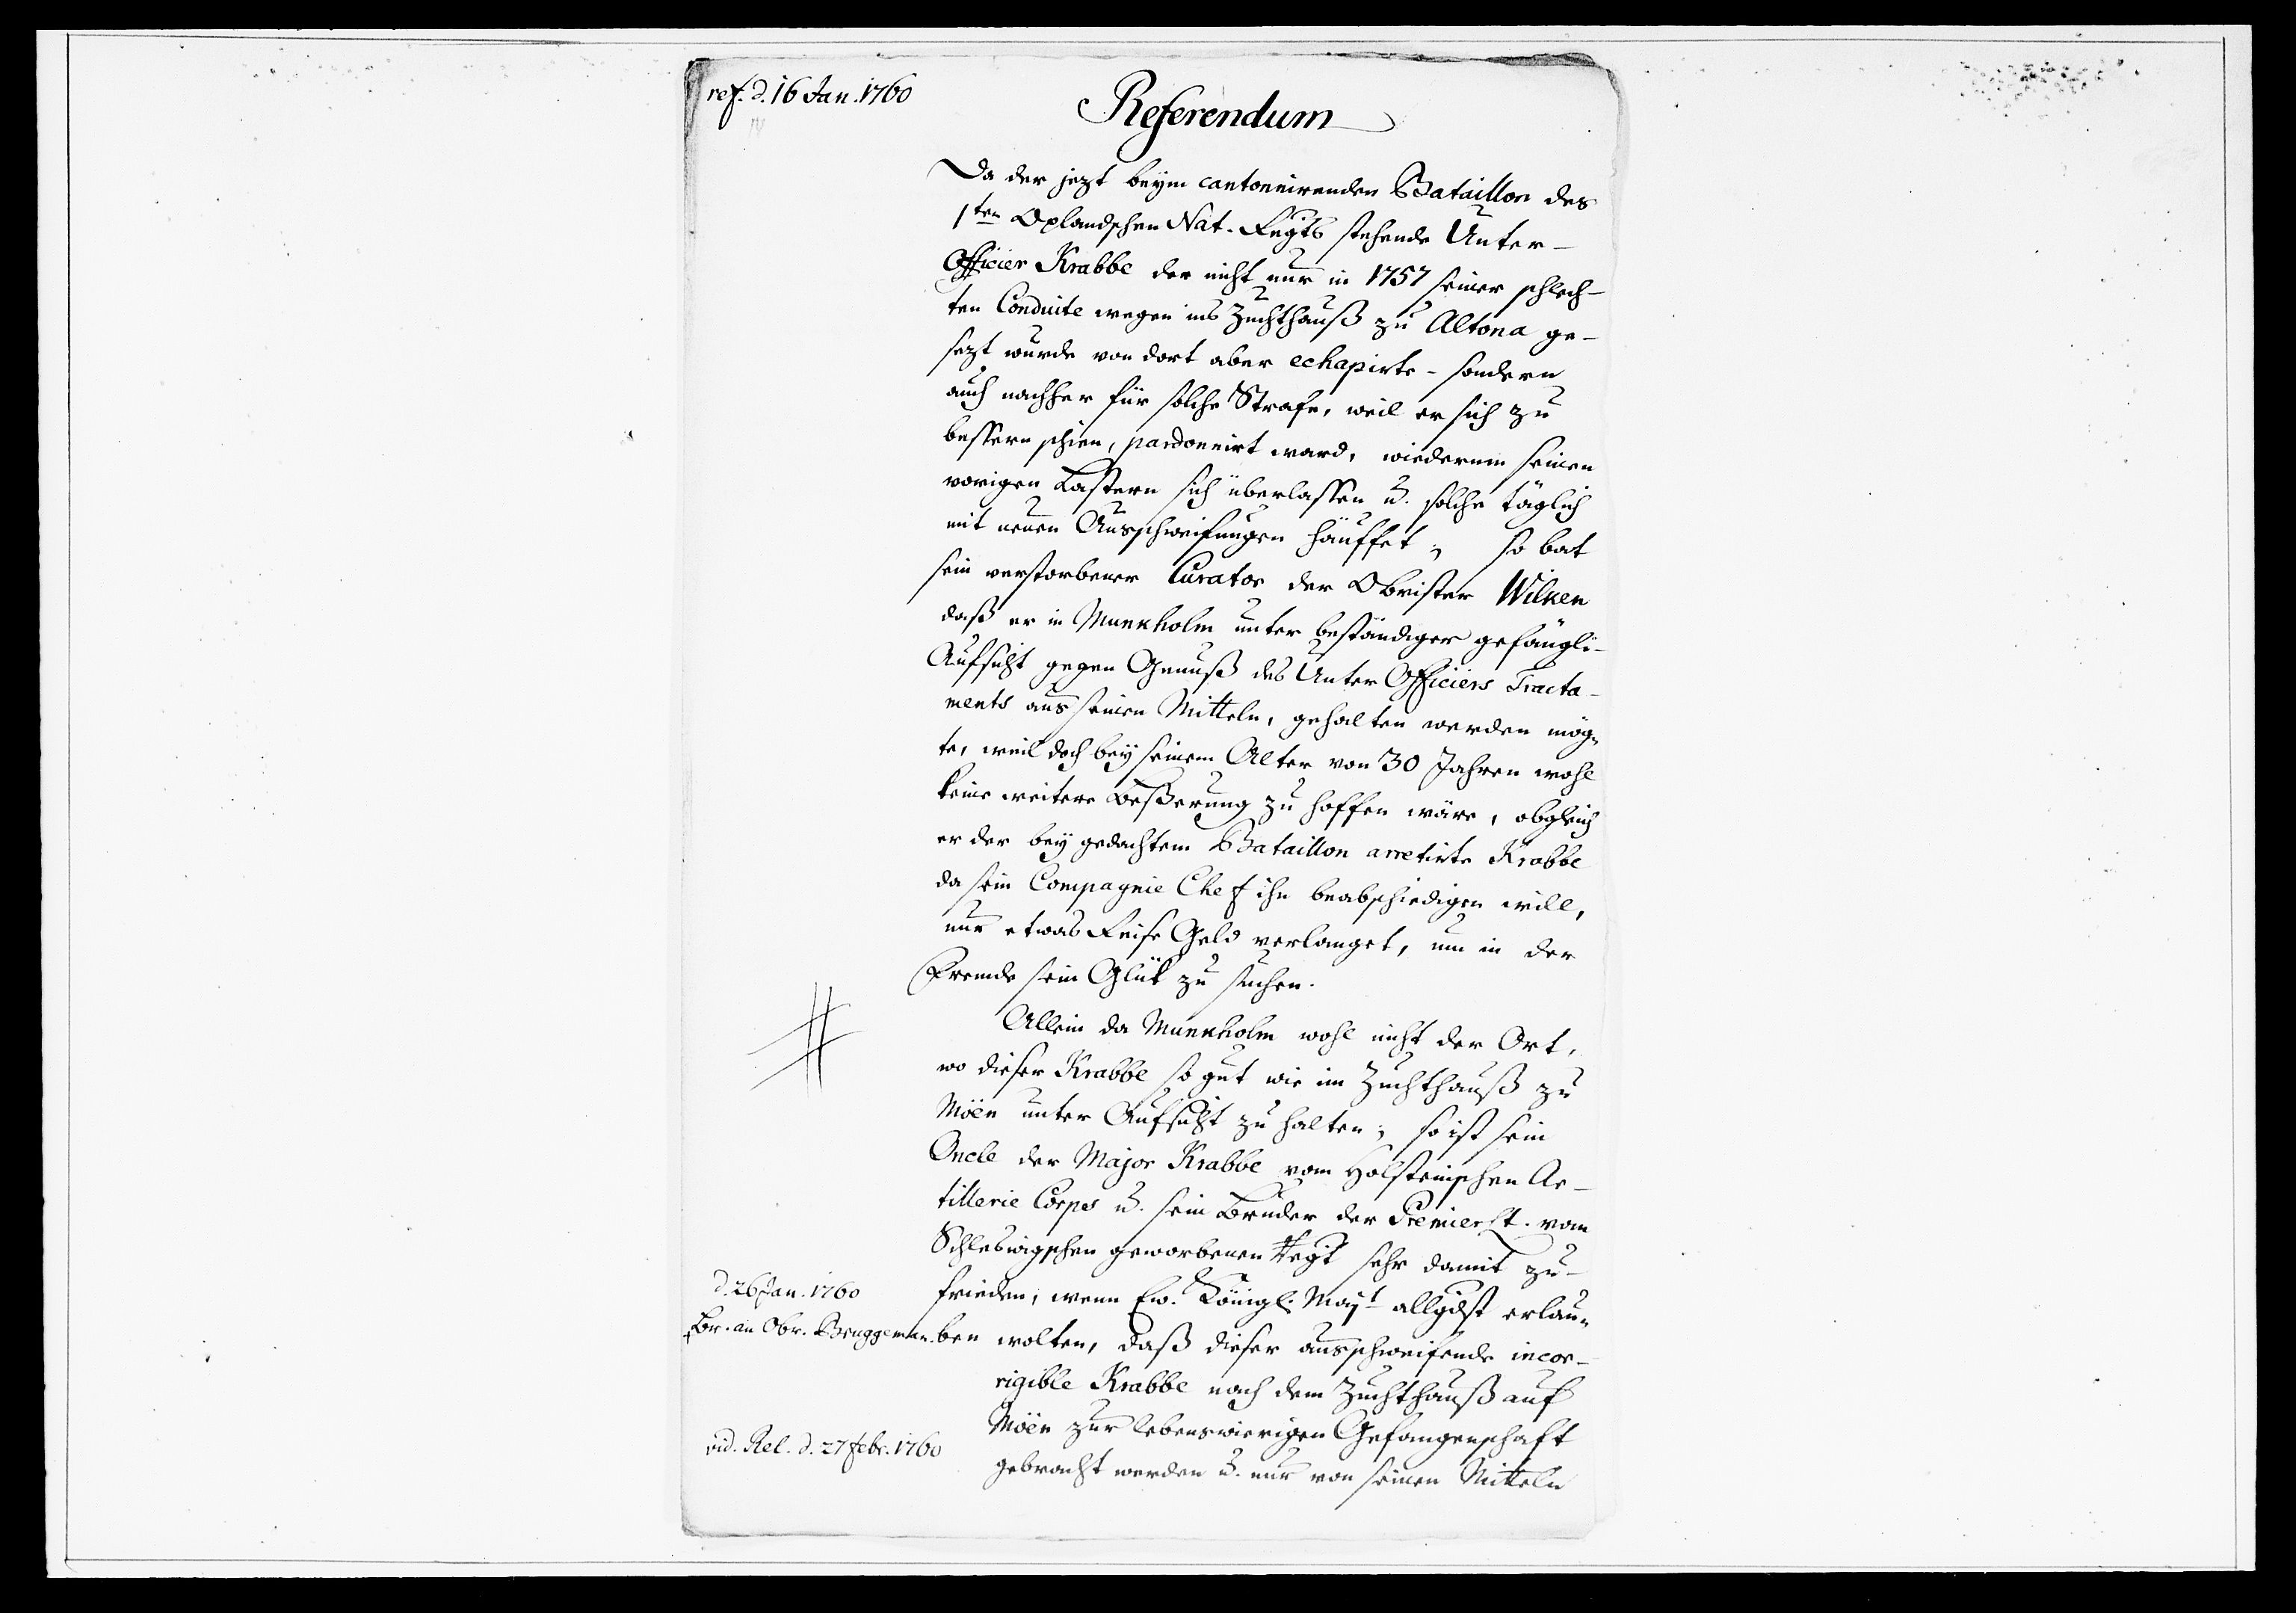 ref. d. 16 Jan. 1760
Referendum
Da der jezt beym cantonnirenden Bataillon des
1ten Oplandschen Nat. Regts stehende Unter-
Officier Krabbe der nicht nur in 1757 seiner schlech-
ten Conduite wegen ins Zuchthauß zu Altona ge-
sezt wurde von dort aber echapirte - sondern
auch nachher für solche Strafe, weil er sich zu
bessern schien, pardonnirt ward, wiederum seinen
vorigen Lastern sich überlassen u. solche täglich
mit neuen Ausschweifungen häuffet; so bat
sein verstorbener Curator der Obrister Wilken
daß er in Munkholm unter beständiger gefängli-
Aufsicht gegen Genuß des Unter Officiers Tracta-
ments aus seinen Mitteln, gehalten werden mög-
te, weil doch bey seinem Alter von 30 Jahren wohl
keine weitere Beßerung zu hoffen wäre, obgleich
er der bey gedachtem Bataillon arretirte Krabbe
da sein Compagnie Chef ihn beabschiedigen will,
nur etwas Reise Geld verlanget, um in der
Fremde sein Glük zu suchen.
Allein da Munkholm wohl nicht der Ort,
wo dieser Krabbe so gut wie im Zuchthauß zu
Möen unter Aufsicht zu halten; so ist sein
Oncle der Major Krabbe vom Holsteinschen Ar-
tillerie Corps u. sein Bruder der Premier Lt. vom
Schleswigschen geworbenen Regt sehr damit zu-
frieden, wenn Ew. Königl. Mayt allgdst erlau-
ben wolten, daß dieser ausschweifende incor-
rigible Krabbe nach dem Zuchthauß auf
Möen zur lebenswierigen Gefangenschaft
gebracht werden u. nur von seinen Mitteln
d. 26 Jan. 1760
Br. an Obr. Bruggeman.
vid. Rel. d. 27 Febr. 1760